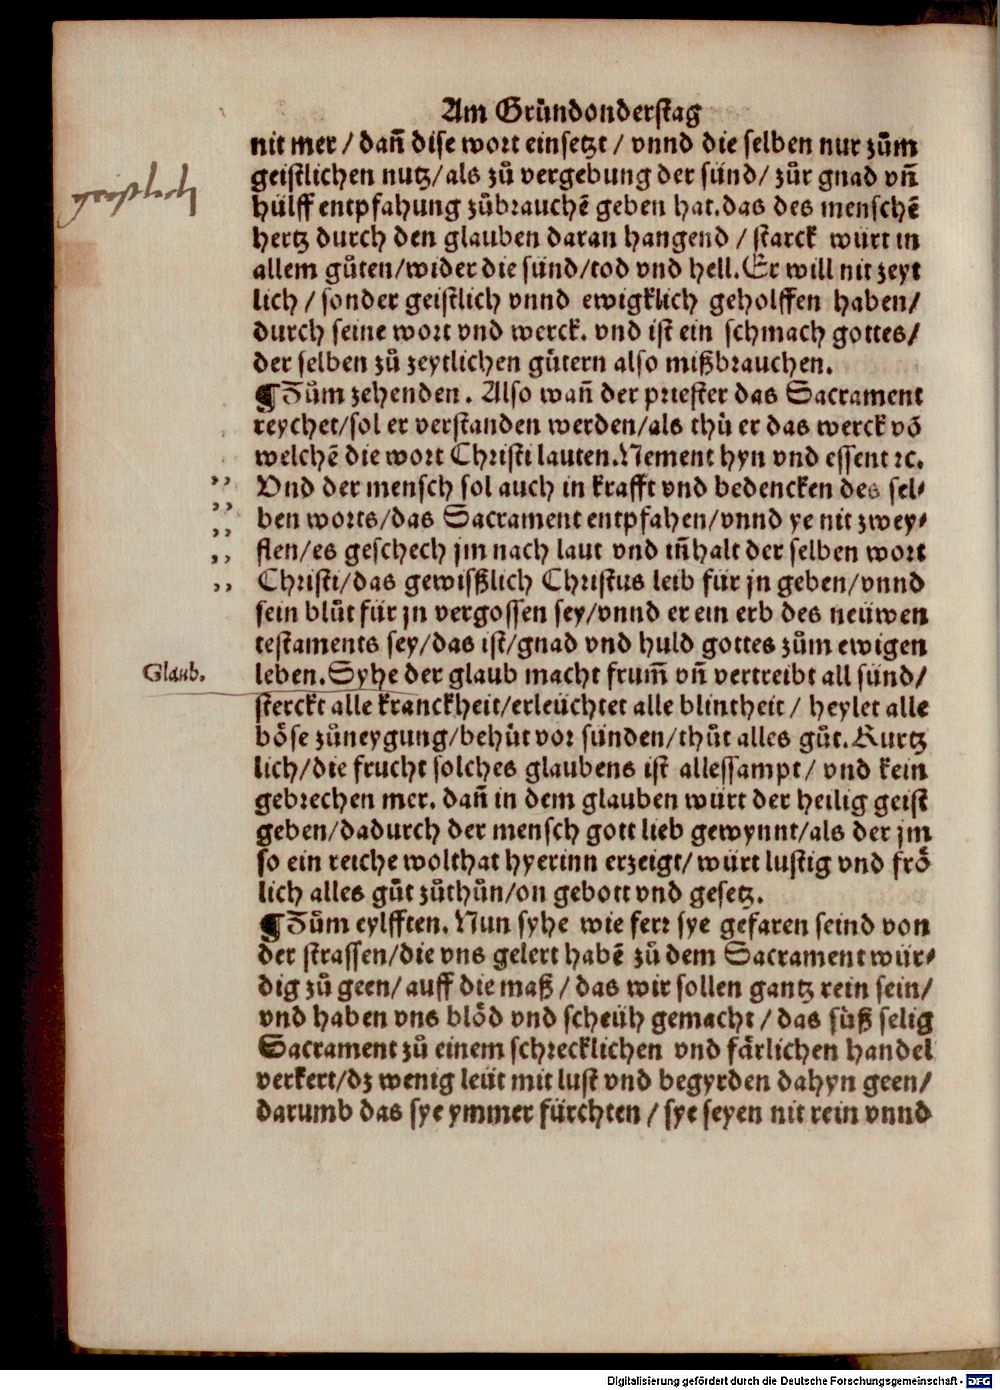 Am Grŭndonderstag
nit mer / dañ dise wort einsetzt / vnnd die selben nur zům
geistlichen nutz/als zů vergebung der sünd/ zůr gnad vñ
hülff entpfahung zůbrauchē geben hat.das des menschē
hertz durch den glauben daran hangend / starck würt in
allem gůten/wider die sünd/tod vnd hell.Er will nit zeyt
lich / sonder geistlich vnnd ewigklich geholffen haben/
durch seine wort vnd werck. vnd ist ein schmach gottes/
der selben zů zeytlichen gütern also mißbrauchen.
¶Zům zehenden. Also wañ der priester das Sacrament
reychet/sol er verstanden werden/als thü er das werck vō
welchē die wort Christi lauten.Nement hyn vnd essent ꝛc.
Vnd der mensch sol auch in krafft vnd bedencken des sel⸗
ben worts/das Sacrament entpfahen/vnnd ye nit zwey⸗
flen/es geschech jm nach laut vnd iñhalt der selben wort
Christi/das gewisßlich Christus leib für jn geben/vnnd
sein blůt für jn vergossen sey/vnnd er ein erb des neüwen
testaments sey/das ist/gnad vnd huld gottes zům ewigen
Glaub.
leben.Syhe der glaub macht frum̃ vñ vertreibt all sünd/
sterckt alle kranckheit/erleüchtet alle blintheit / heylet alle
böse zůneygung/behüt vor sünden/thůt alles gůt.Kurtz
lich/die frucht solches glaubens ist allessampt/ vnd kein
gebrechen mer. dañ in dem glauben würt der heilig geist
geben/dadurch der mensch gott lieb gewynnt/als der jm
so ein reiche wolthat hyerinn erzeigt/ würt lustig vnd frö
lich alles gůt zůthůn/on gebott vnd gesetz.
¶Zům eylfften. Nun syhe wie ferr sye gefaren seind von
der strassen/die vns gelert habē zů dem Sacrament wür⸗
dig zů geen/ auff die maß / das wir sollen gantz rein sein/
vnd haben vns blöd vnd scheüh gemacht / das süß selig
Sacrament zů einem schrecklichen vnd färlichen handel
verkert/dz wenig leüt mit lust vnd begyrden dahyn geen/
darumb das sye ymmer fürchten / sye seyen nit rein vnnd
Digitalisierung gefördert durch die Deutsche Forschungsgemeinschaft - DFG